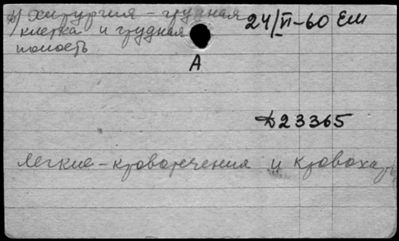 1) Хирургия - грудная
клетка и грудная
полость
24/VI-60 ЕМ
А
Д23365
легкие - кровотечения и кровохар